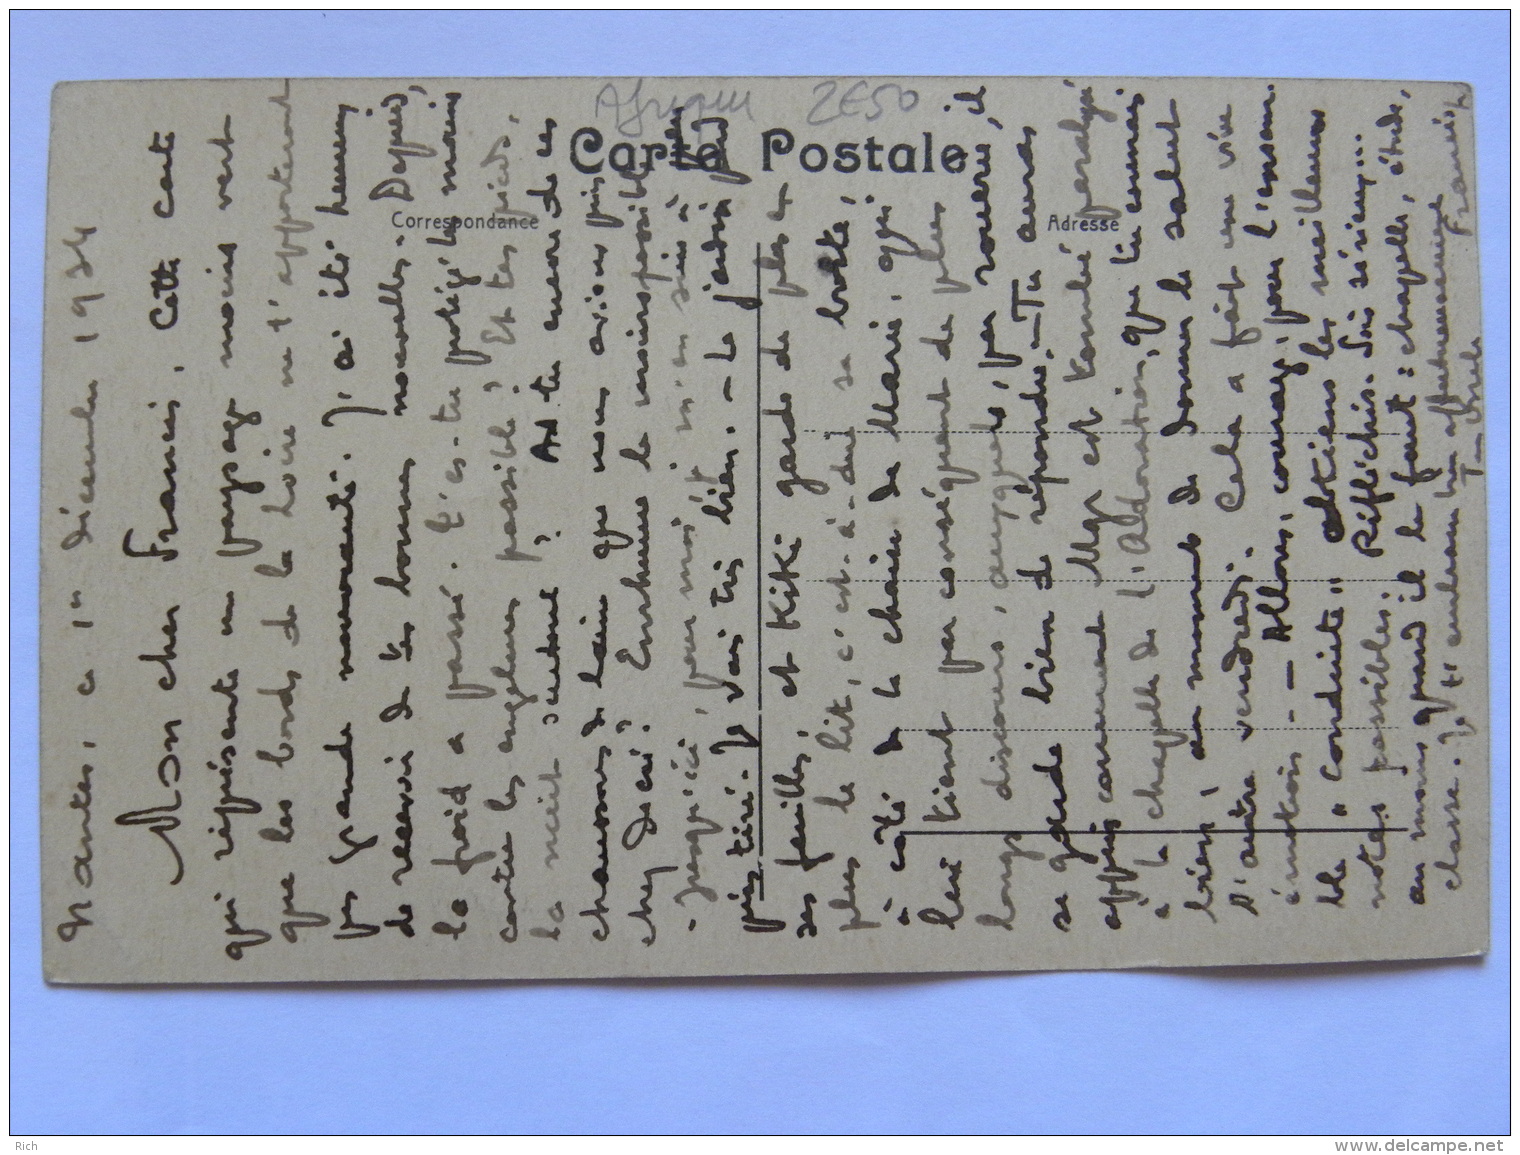 Afrique 2€50
Carte Postale
Correspondance
Adresse
Nantes, ce 1er décembre 1934
Mon cher Francis, Cette carte
qui représente un paysage moins vert
que les bords de la Loire ne t'apportent
pas grande nouveauté. J'ai été heureux
de recevoir de tes bonnes nouvelles. Depuis,
le froid a passé. T'es-tu protégé les mains
contre les engelures possibles? Et tes pieds,
la nuit surtout? As-tu encore de ces
chaussons de laine que nous avions pris
chez Decré? Enrhume le moins possible
- Jusqu'ici, pour moi, je m'en suis à peu
près tiré. - Je vais très bien. - Le jardin perd
ses feuilles, et Kiki garde de plus en
plus le lit, c'est-à-dire sa boîte,
à côté de la chaise de Marie, qui
lui tient par conséquent de plus
longs discours, auxquels, par source, il
se garde bien de répondre. - Tu auras
appris comment Mgr est tombé paralysé
à la chapelle de l'Adoration, que tu connais
bien, au moment de donner le salut
l'autre vendredi. Cela a fait une vive
émotion. - Allons, courage, pour l'exam.
Ble "conduite" obtiens les meilleures
notes possibles. Réfléchis. Sois sérieux...
au moins quand il le faut : chapelle, étude,
classe. Je t'embrasse affectueusement
T- Oncle Francis
Rich
www.delcampe.net